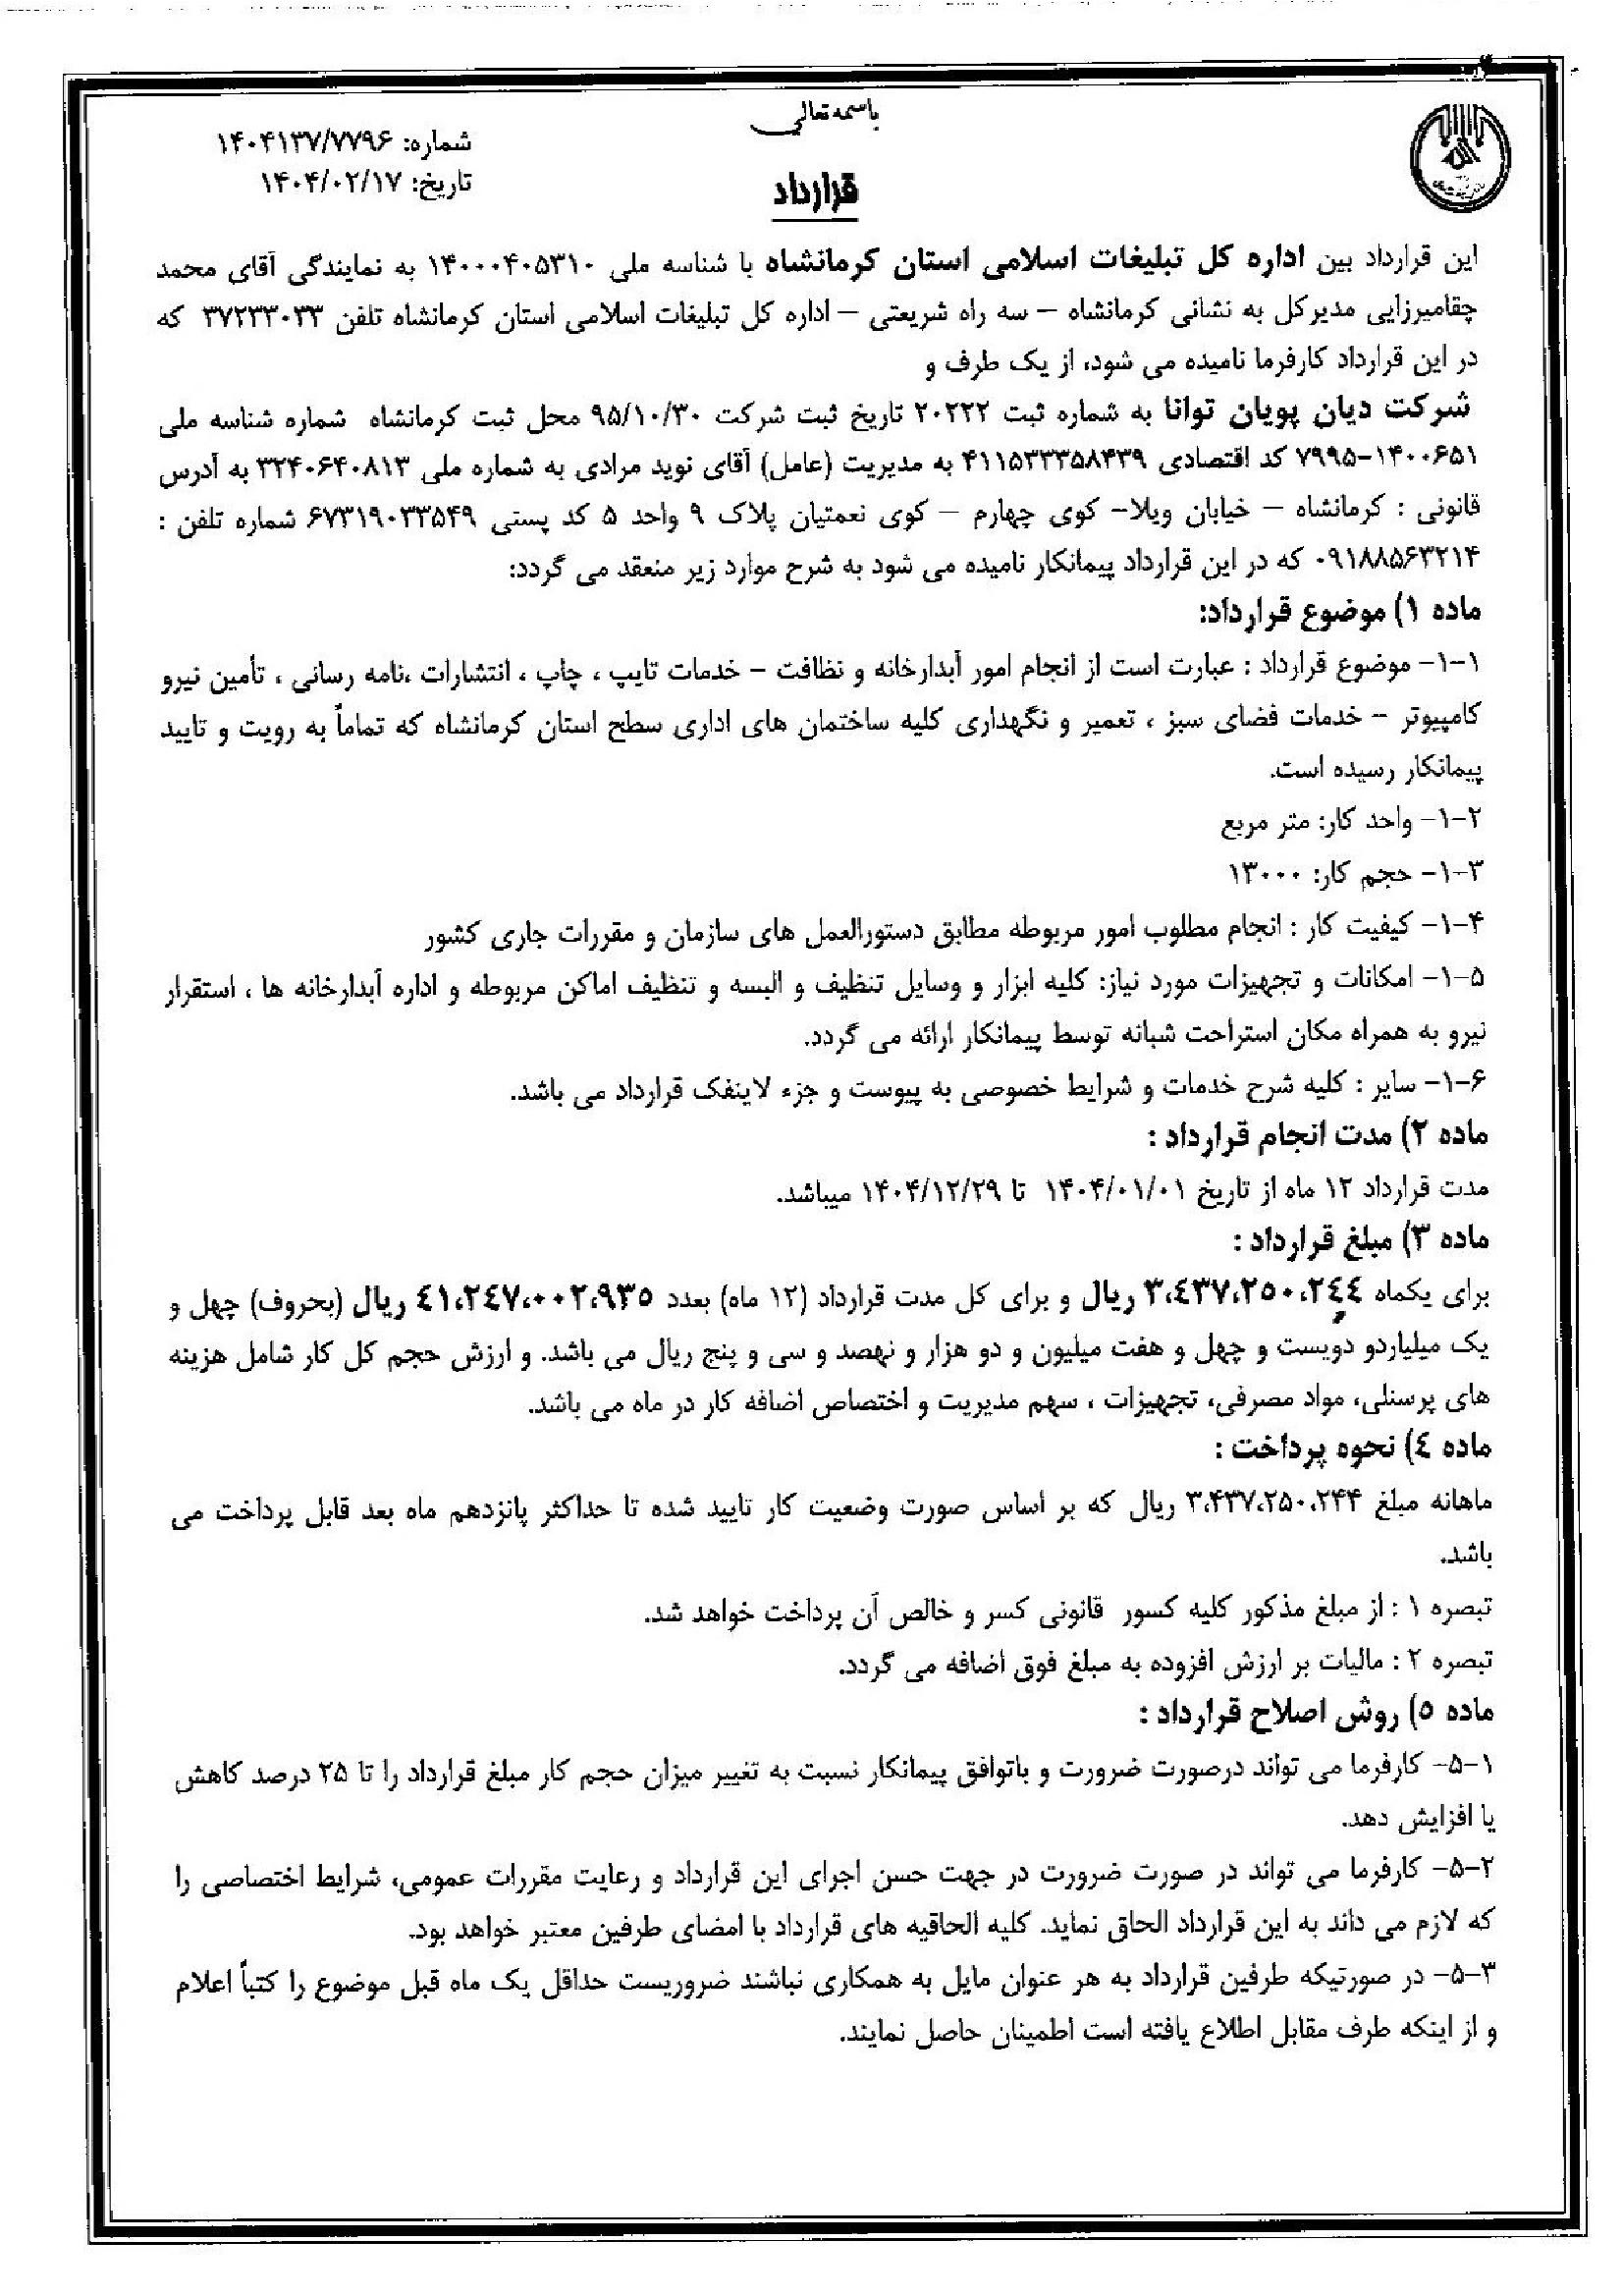 باسمه تعالی
شماره: ۱۴۰۴۱۳۷/۷۷۹۶
تاریخ: ۱۴۰۴/۰۲/۱۷
قرارداد
این قرارداد بین اداره کل تبلیغات اسلامی استان کرمانشاه با شناسه ملی ۱۴۰۰۰۴۰۵۳۱۰ به نمایندگی آقای محمد
چقامیرزایی مدیرکل به نشانی کرمانشاه – سه راه شریعتی – اداره کل تبلیغات اسلامی استان کرمانشاه تلفن ۳۷۲۳۳۰۳۳ که
در این قرارداد کارفرما نامیده می شود، از یک طرف و
شرکت دیان پویان توانا به شماره ثبت ۲۰۲۲۲ تاریخ ثبت شرکت ۹۵/۱۰/۳۰ محل ثبت کرمانشاه شماره شناسه ملی
۱۴۰۰۶۵۱-۷۹۹۵ کد اقتصادی ۴۱۱۵۳۳۳۵۸۴۳۹ به مدیریت (عامل) آقای نوید مرادی به شماره ملی ۳۲۴۰۶۴۰۸۱۳ به آدرس
قانونی : کرمانشاه – خیابان ویلا- کوی چهارم – کوی نعمتیان پلاک ۹ واحد ۵ کد پستی ۶۷۳۱۹۰۳۳۵۴۹ شماره تلفن :
۰۹۱۸۸۵۶۳۲۱۴ که در این قرارداد پیمانکار نامیده می شود به شرح موارد زیر منعقد می گردد:
ماده ۱) موضوع قرارداد:
۱-۱- موضوع قرارداد : عبارت است از انجام امور آبدارخانه و نظافت – خدمات تایپ ، چاپ ، انتشارات ،نامه رسانی ، تأمین نیرو
کامپیوتر – خدمات فضای سبز ، تعمیر و نگهداری کلیه ساختمان های اداری سطح استان کرمانشاه که تماماً به رویت و تایید
پیمانکار رسیده است.
۱-۲- واحد کار: متر مربع
۱-۳- حجم کار: ۱۳۰۰۰
۱-۴- کیفیت کار : انجام مطلوب امور مربوطه مطابق دستورالعمل های سازمان و مقررات جاری کشور
۱-۵- امکانات و تجهیزات مورد نیاز: کلیه ابزار و وسایل تنظیف و البسه و تنظیف اماکن مربوطه و اداره آبدارخانه ها ، استقرار
نیرو به همراه مکان استراحت شبانه توسط پیمانکار ارائه می گردد.
۱-۶- سایر : کلیه شرح خدمات و شرایط خصوصی به پیوست و جزء لاینفک قرارداد می باشد.
ماده ۲) مدت انجام قرارداد :
مدت قرارداد ۱۲ ماه از تاریخ ۱۴۰۴/۰۱/۰۱ تا ۱۴۰۴/۱۲/۲۹ میباشد.
ماده ۳) مبلغ قرارداد :
برای یکماه ۳،٤۳۷،۲۵۰،۲٤٤ ریال و برای کل مدت قرارداد (۱۲ ماه) بعدد ٤۱،۲٤۷،۰۰۲،۹۳۵ ریال (بحروف) چهل و
یک میلیاردو دویست و چهل و هفت میلیون و دو هزار و نهصد و سی و پنج ریال می باشد. و ارزش حجم کل کار شامل هزینه
های پرسنلی، مواد مصرفی، تجهیزات ، سهم مدیریت و اختصاص اضافه کار در ماه می باشد.
ماده ٤) نحوه پرداخت :
ماهانه مبلغ ۳،۴۳۷،۲۵۰،۲۴۴ ریال که بر اساس صورت وضعیت کار تایید شده تا حداکثر پانزدهم ماه بعد قابل پرداخت می
باشد.
تبصره ۱ : از مبلغ مذکور کلیه کسور قانونی کسر و خالص آن پرداخت خواهد شد.
تبصره ۲ : مالیات بر ارزش افزوده به مبلغ فوق اضافه می گردد.
ماده ۵) روش اصلاح قرارداد :
۵-۱- کارفرما می تواند درصورت ضرورت و باتوافق پیمانکار نسبت به تغییر میزان حجم کار مبلغ قرارداد را تا ۲۵ درصد کاهش
یا افزایش دهد.
۵-۲- کارفرما می تواند در صورت ضرورت در جهت حسن اجرای این قرارداد و رعایت مقررات عمومی، شرایط اختصاصی را
که لازم می داند به این قرارداد الحاق نماید. کلیه الحاقیه های قرارداد با امضای طرفین معتبر خواهد بود.
۵-۳- در صورتیکه طرفین قرارداد به هر عنوان مایل به همکاری نباشند ضروریست حداقل یک ماه قبل موضوع را کتباً اعلام
و از اینکه طرف مقابل اطلاع یافته است اطمینان حاصل نمایند.